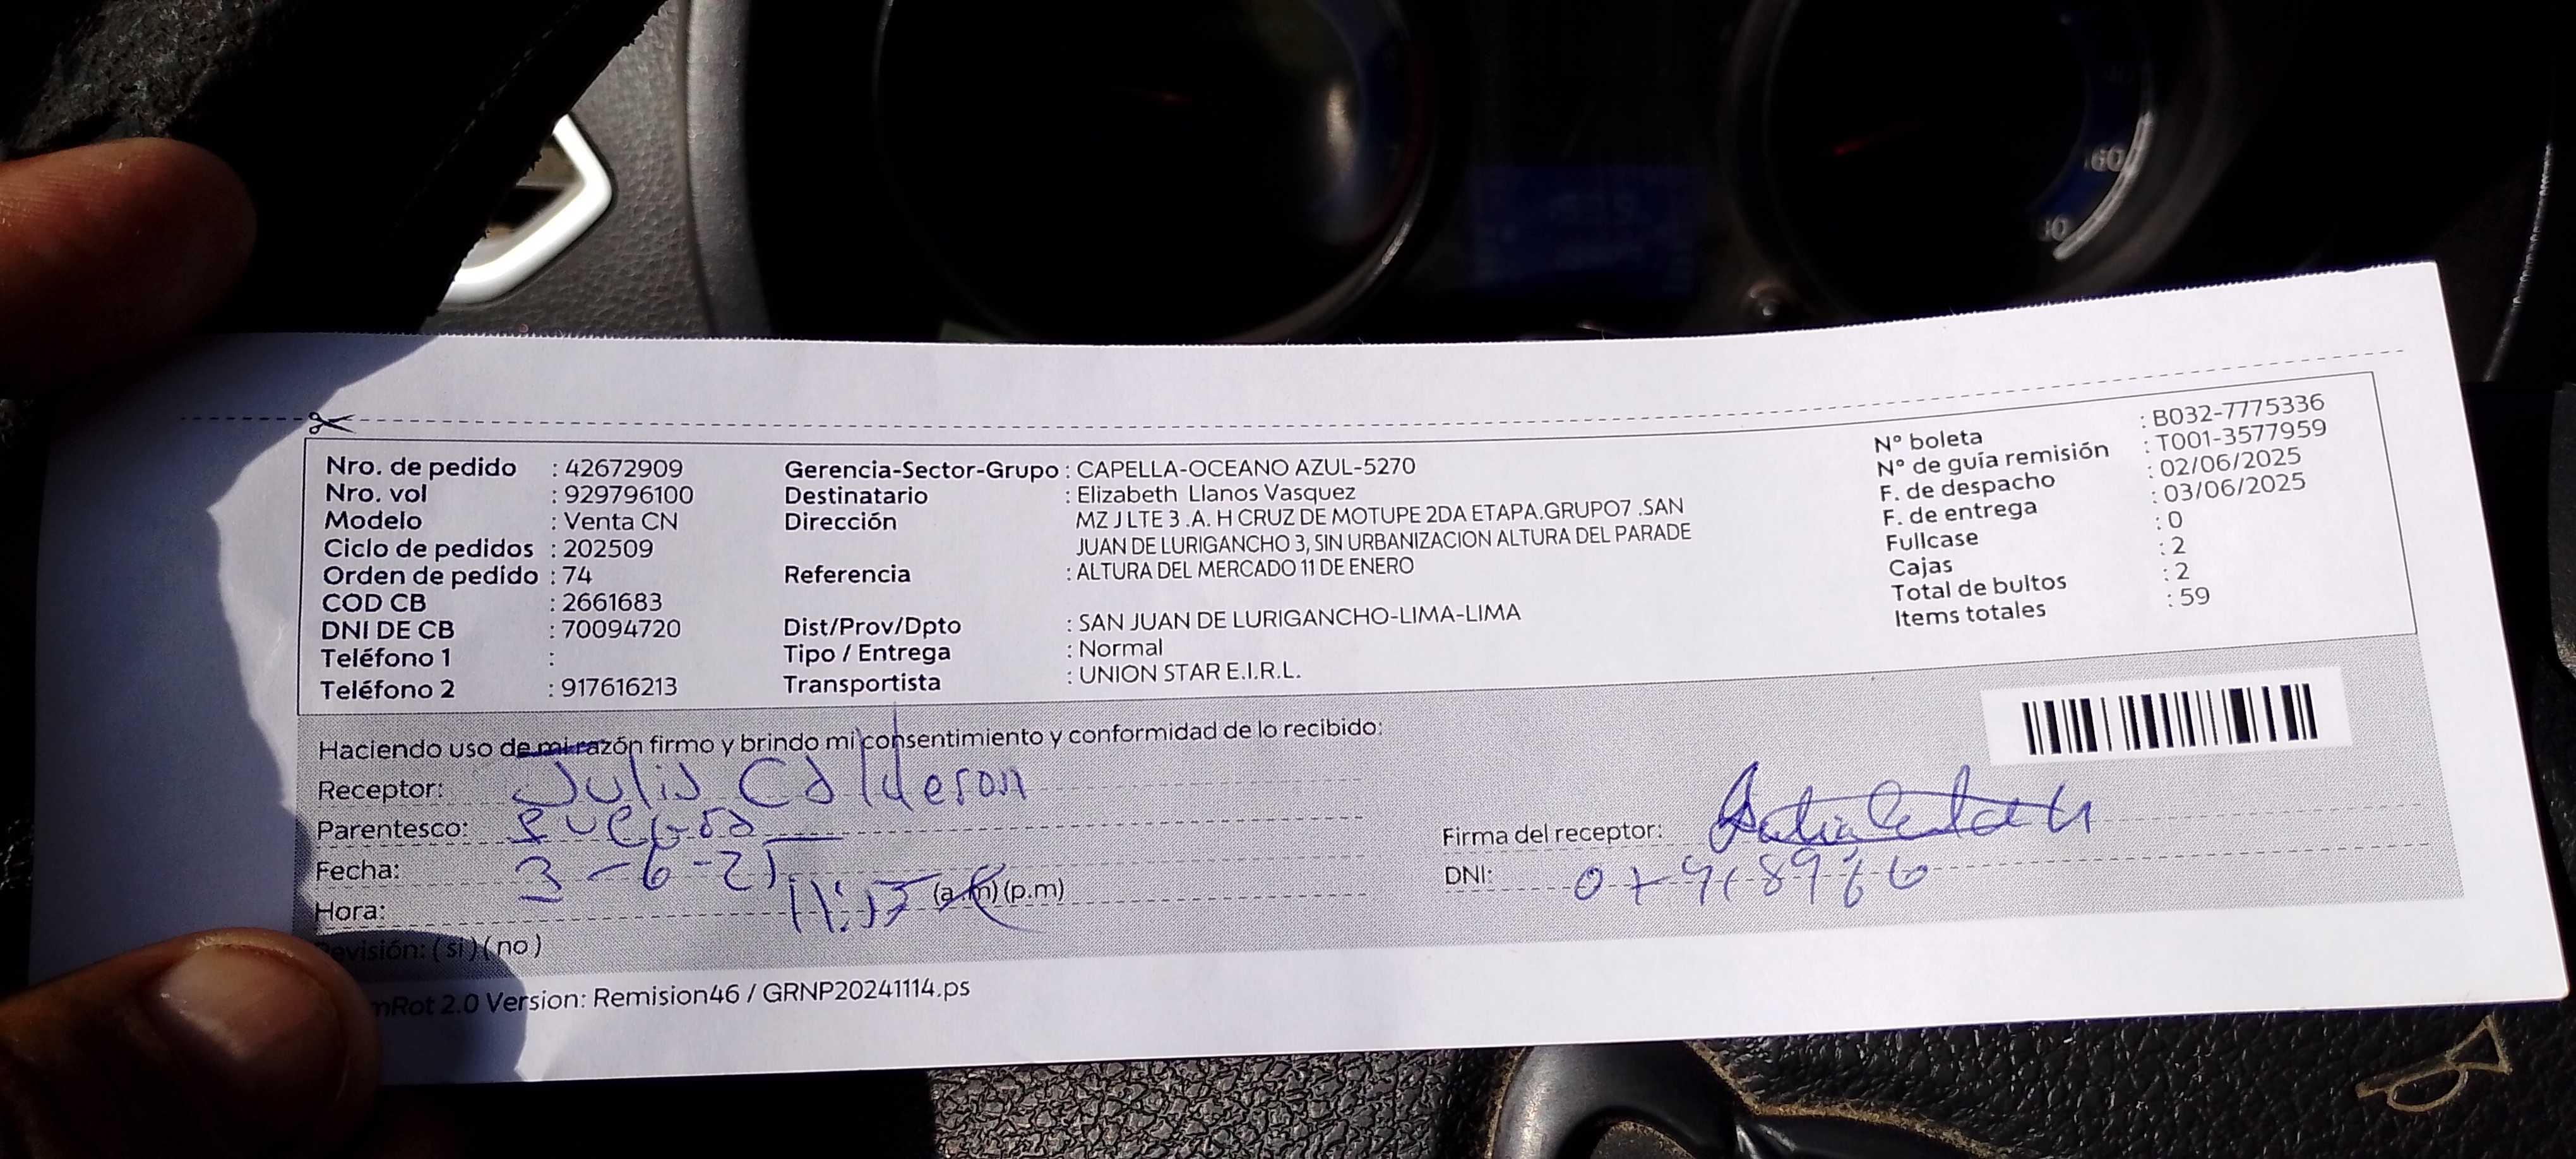 Nro. de pedido : 42672909
Nro. vol : 929796100
Modelo : Venta CN
Ciclo de pedidos : 202509
Orden de pedido : 74
COD CB : 2661683
DNI DE CB : 70094720
Teléfono 1 :
Teléfono 2 : 917616213
Gerencia-Sector-Grupo : CAPELLA-OCEANO AZUL-5270
Destinatario : Elizabeth Llanos Vasquez
Dirección MZ J LTE 3 .A. H CRUZ DE MOTUPE 2DA ETAPA.GRUPO7 .SAN
JUAN DE LURIGANCHO 3, SIN URBANIZACION ALTURA DEL PARADE
Referencia : ALTURA DEL MERCADO 11 DE ENERO
Dist/Prov/Dpto : SAN JUAN DE LURIGANCHO-LIMA-LIMA
Tipo / Entrega : Normal
Transportista : UNION STAR E.I.R.L.
N° boleta : B032-7775336
N° de guía remisión : T001-3577959
F. de despacho : 02/06/2025
F. de entrega : 03/06/2025
Fullcase : 0
Cajas : 2
Total de bultos : 2
Items totales : 59
Haciendo uso de mi razón firmo y brindo mi consentimiento y conformidad de lo recibido:
Receptor: Julia Calderon
Parentesco: suegra
Fecha: 3-6-25
Hora: (a.m)(p.m)
Revisión: (si)(no)
Firma del receptor:
DNI:
2.0 Version: Remision46 / GRNP20241114.ps
60